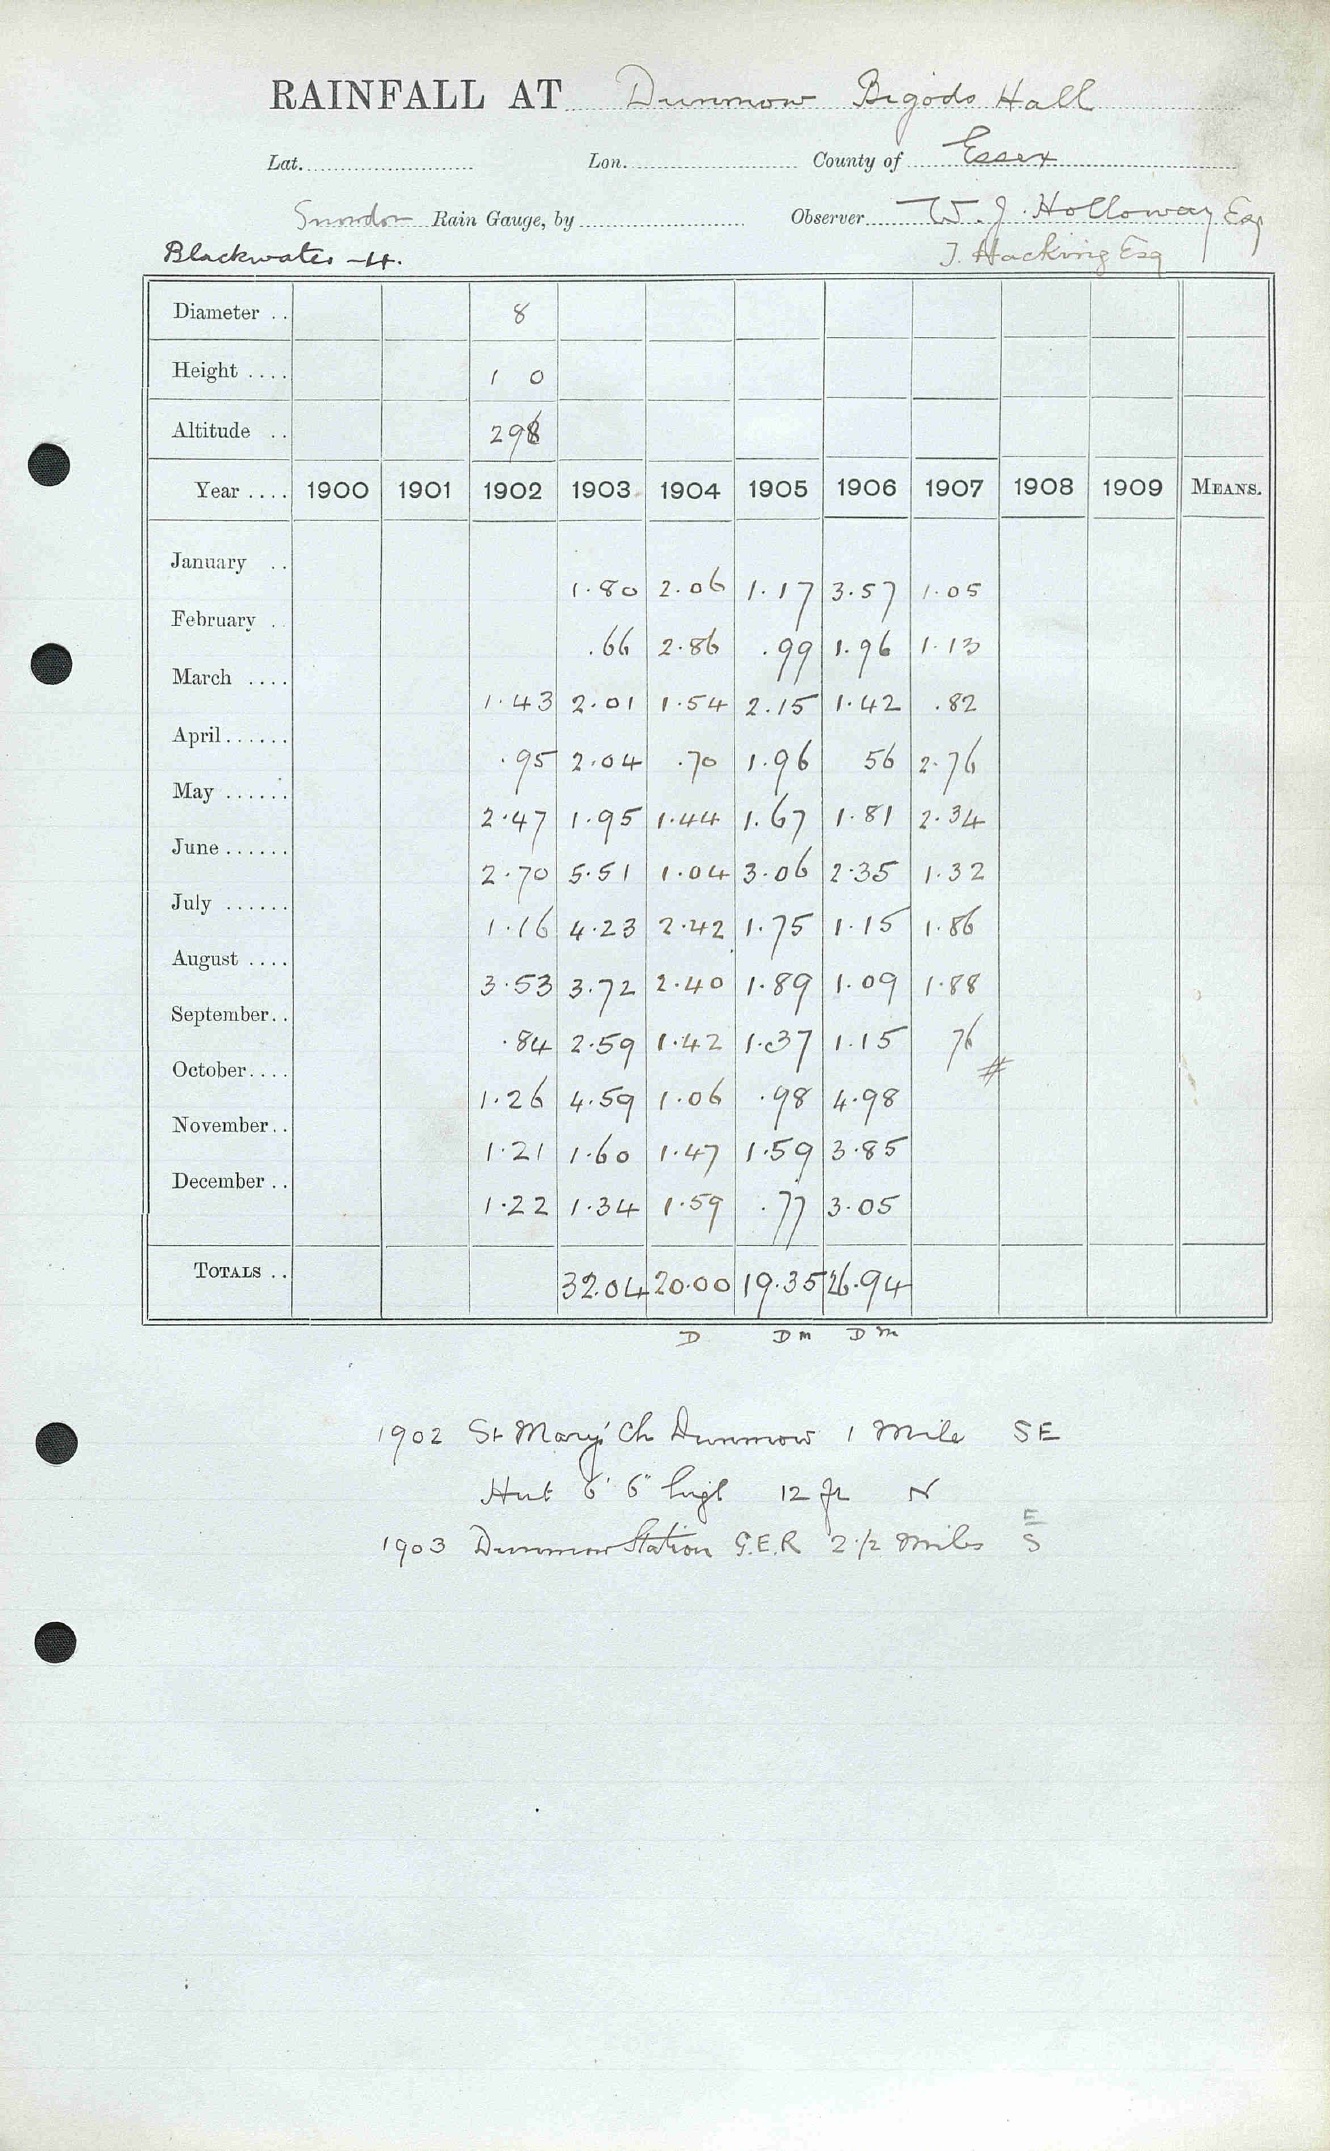 RAINFALL AT Dunmow Bigods Hall
Lat. Lon. County of Essex
Snowdon Rain Gauge, by Observer W. J. Holloway Esq
Blackwater -4. J. Hacking Esq
Diameter .. 8
Height .... 1 0
Altitude .. 298
Year .... 1900 1901 1902 1903 1904 1905 1906 1907 1908 1909 MEANS.
January .. 1.80 2.06 1.17 3.57 1.05
February . .66 2.86 .99 1.96 1.13
March .... 1.43 2.01 1.54 2.15 1.42 .82
April ...... .95 2.04 .70 1.96 56 2.76
May ...... 2.47 1.95 1.44 1.67 1.81 2.34
June ...... 2.70 5.51 1.04 3.06 2.35 1.32
July ...... 1.16 4.23 2.42 1.75 1.15 1.86
August .... 3.53 3.72 2.40 1.89 1.09 1.88
September.. .84 2.59 1.42 1.37 1.15 76 #
October.... 1.26 4.59 1.06 .98 4.98
November.. 1.21 1.60 1.47 1.59 3.85
December .. 1.22 1.34 1.59 .77 3.05
TOTALS .. 32.04 20.00 19.35 26.94
D D m D m
1902 St Mary's Ch Dunmow 1 Mile SE
Hut 6' 6" high 12 ft N
E
1903 Dunmow Station G.E.R 2 1/2 Miles S